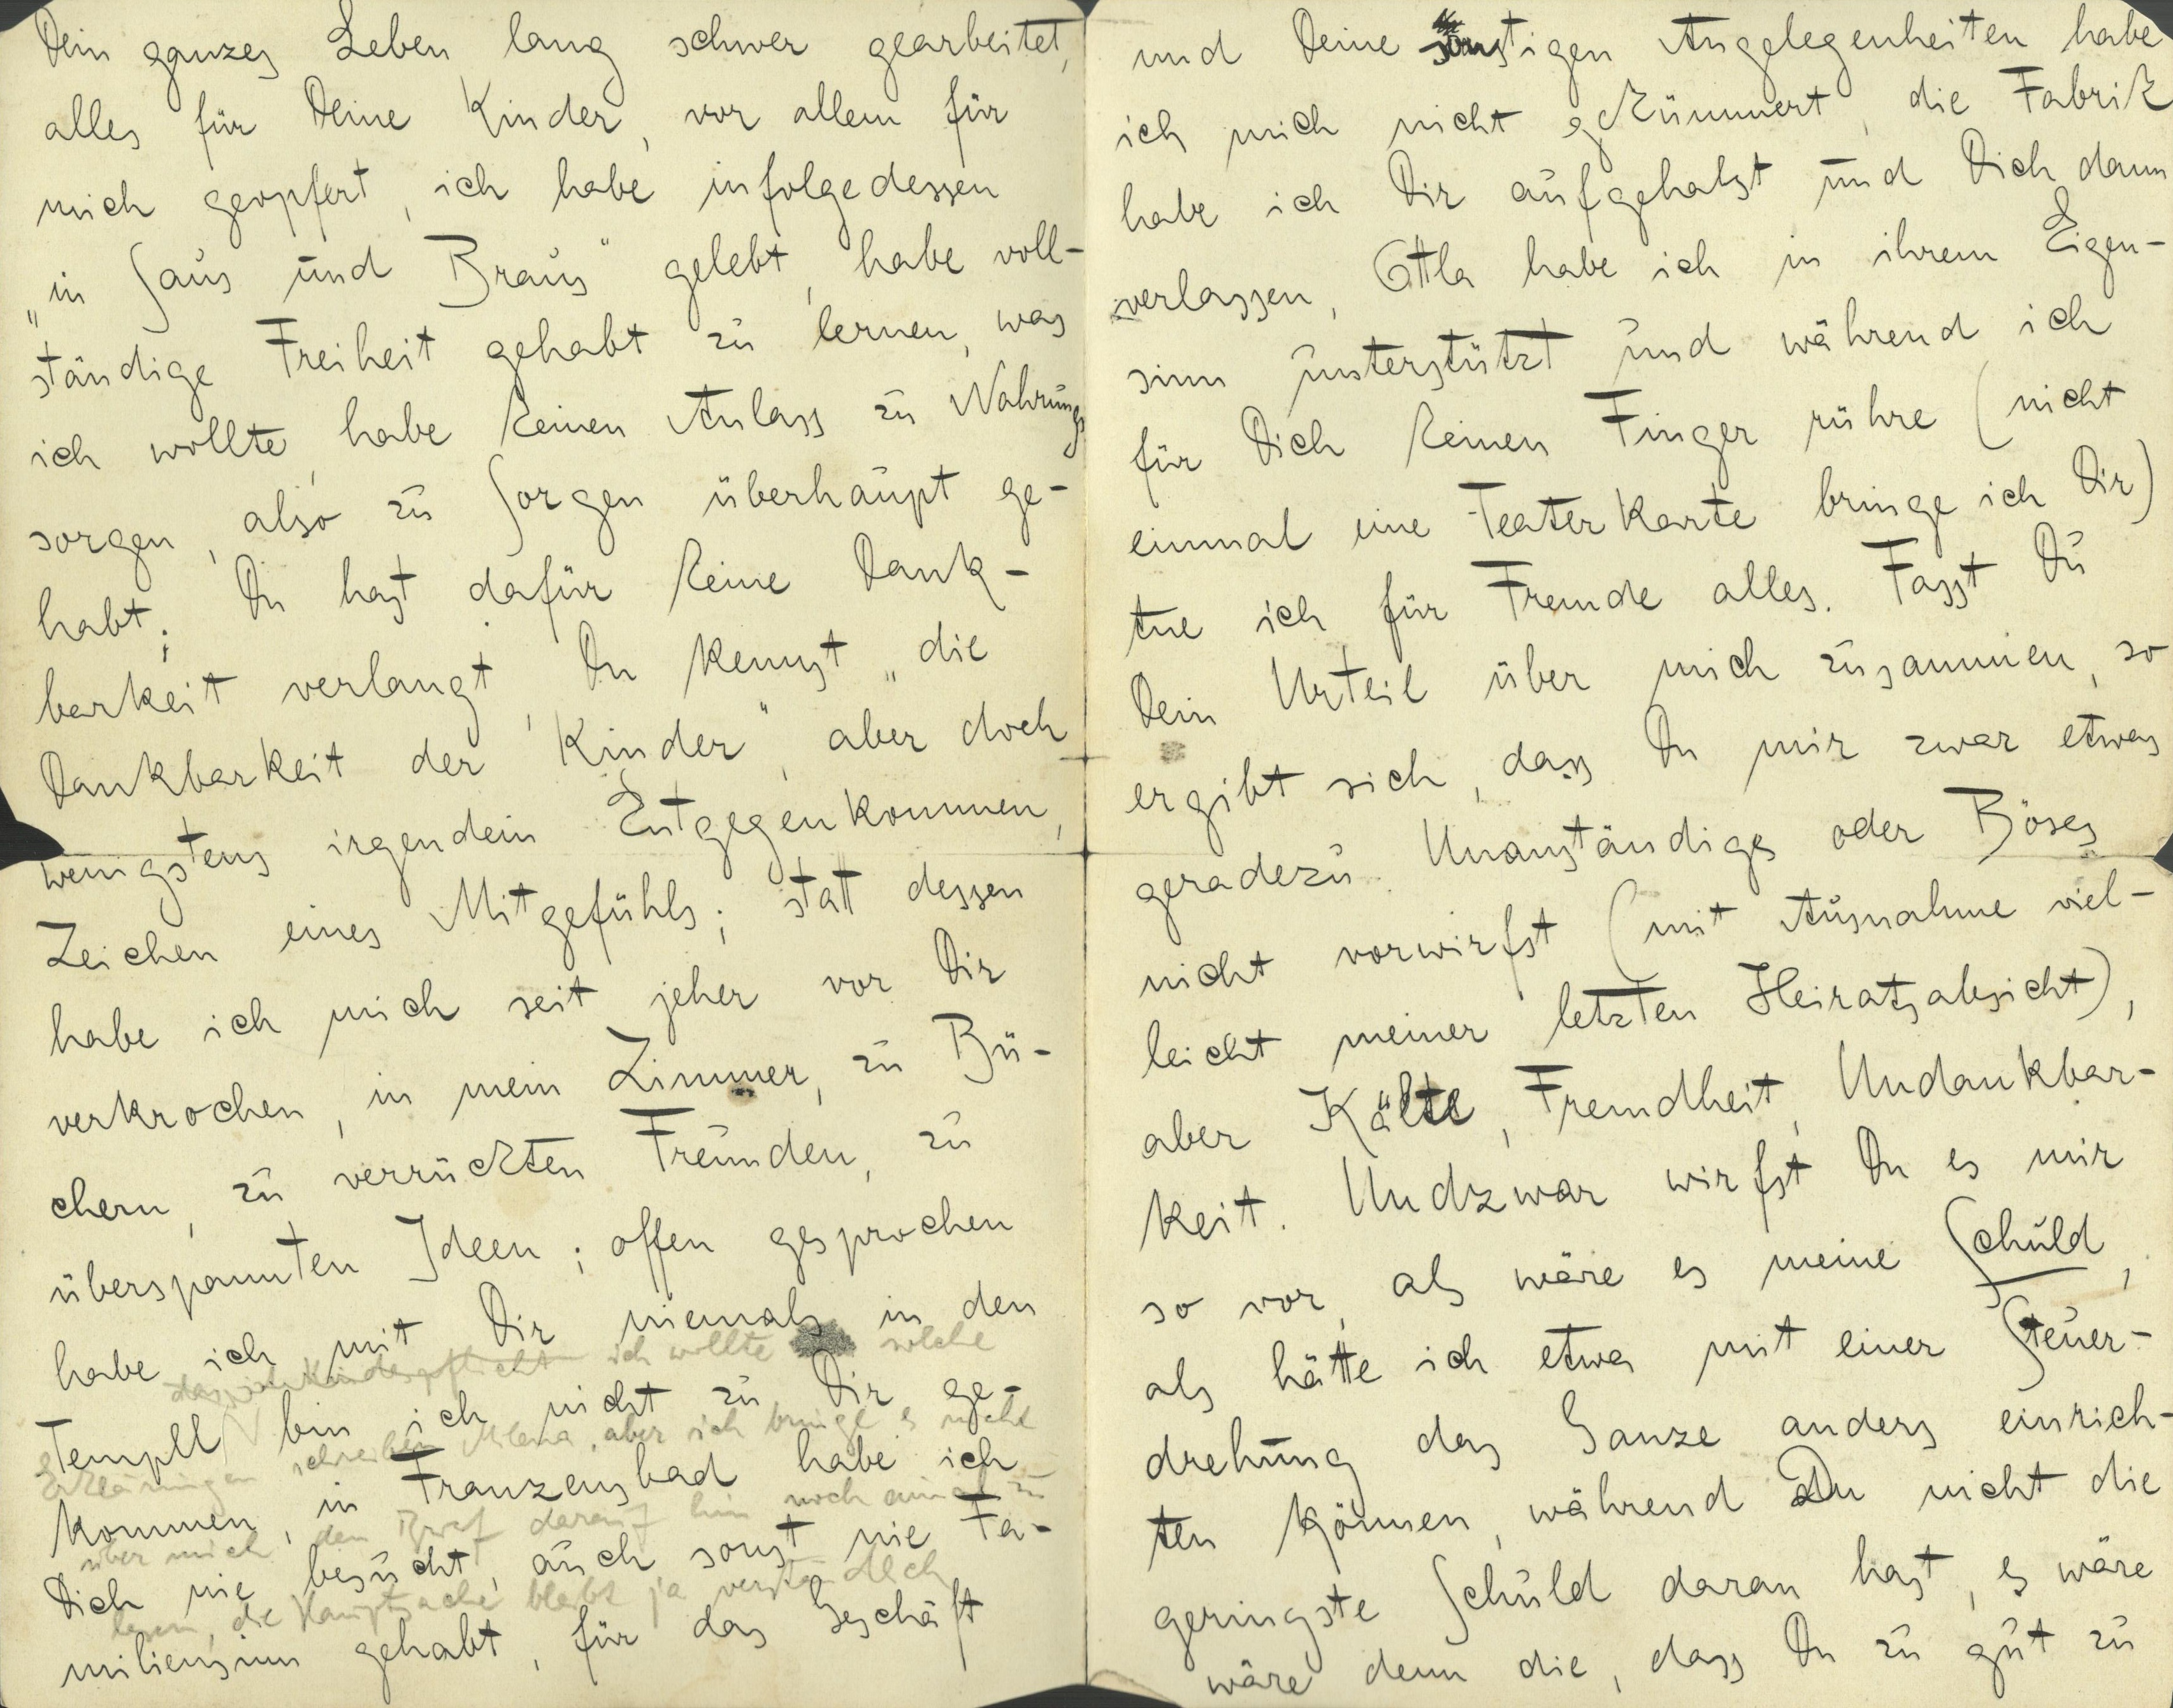 Dein ganzes Leben lang schwer gearbeitet,
alles für Deine Kinder, vor allem für
mich geopfert, ich habe infolgedessen
„in Saus und Braus" gelebt, habe voll-
ständige Freiheit gehabt zu lernen, was
ich wollte, habe keinen Anlass zu Nahrungs
sorgen, also zu Sorgen überhaupt ge-
habt; Du hast dafür keine Dank-
barkeit verlangt, Du kennst „die
Dankbarkeit der Kinder", aber doch
wenigstens irgendein Entgegenkommen,
Zeichen eines Mitgefühls; statt dessen
habe ich mich seit jeher vor Dir
verkrochen, in mein Zimmer, zu Bü-
chern, zu verrückten Freunden, zu
überspannten Ideen; offen gesprochen
habe ich mit Dir niemals, in den
ich wollte solche
Tempel bin ich nicht zu Dir ge-
Erklärungen schreiben Milena, aber ich bringe es nicht
kommen, in Franzensbad habe ich
über mich den Brief darauf hin noch einmal zu
Dich nie besucht, auch sonst nie Fa-
lesen, die Hauptsache bleibt ja verständlich
miliensinn gehabt, für das Geschäft
und Deine sonstigen Angelegenheiten habe
ich mich nicht gekümmert, die Fabrik
habe ich Dir aufgehalst und Dich dann
verlassen, Ottla habe ich in ihrem Eigen-
sinn unterstützt und während ich
für Dich keinen Finger rühre (nicht
einmal eine Teaterkarte bringe ich Dir)
tue ich für Fremde alles. Fasst Du
Dein Urteil über mich zusammen, so
ergibt sich, dass Du mir zwar etwas
geradezu Unanständiges oder Böses
nicht vorwirfst (mit Ausnahme viel-
leicht meiner letzten Heiratsabsicht),
aber Kälte, Fremdheit, Undankbar-
keit. Undzwar wirfst Du es mir
so vor, als wäre es meine Schuld,
als hätte ich etwa mit einer Steuer-
drehung das Ganze anders einrich-
ten können, während Du nicht die
geringste Schuld daran hast, es wäre
wäre denn die, dass Du zu gut zu